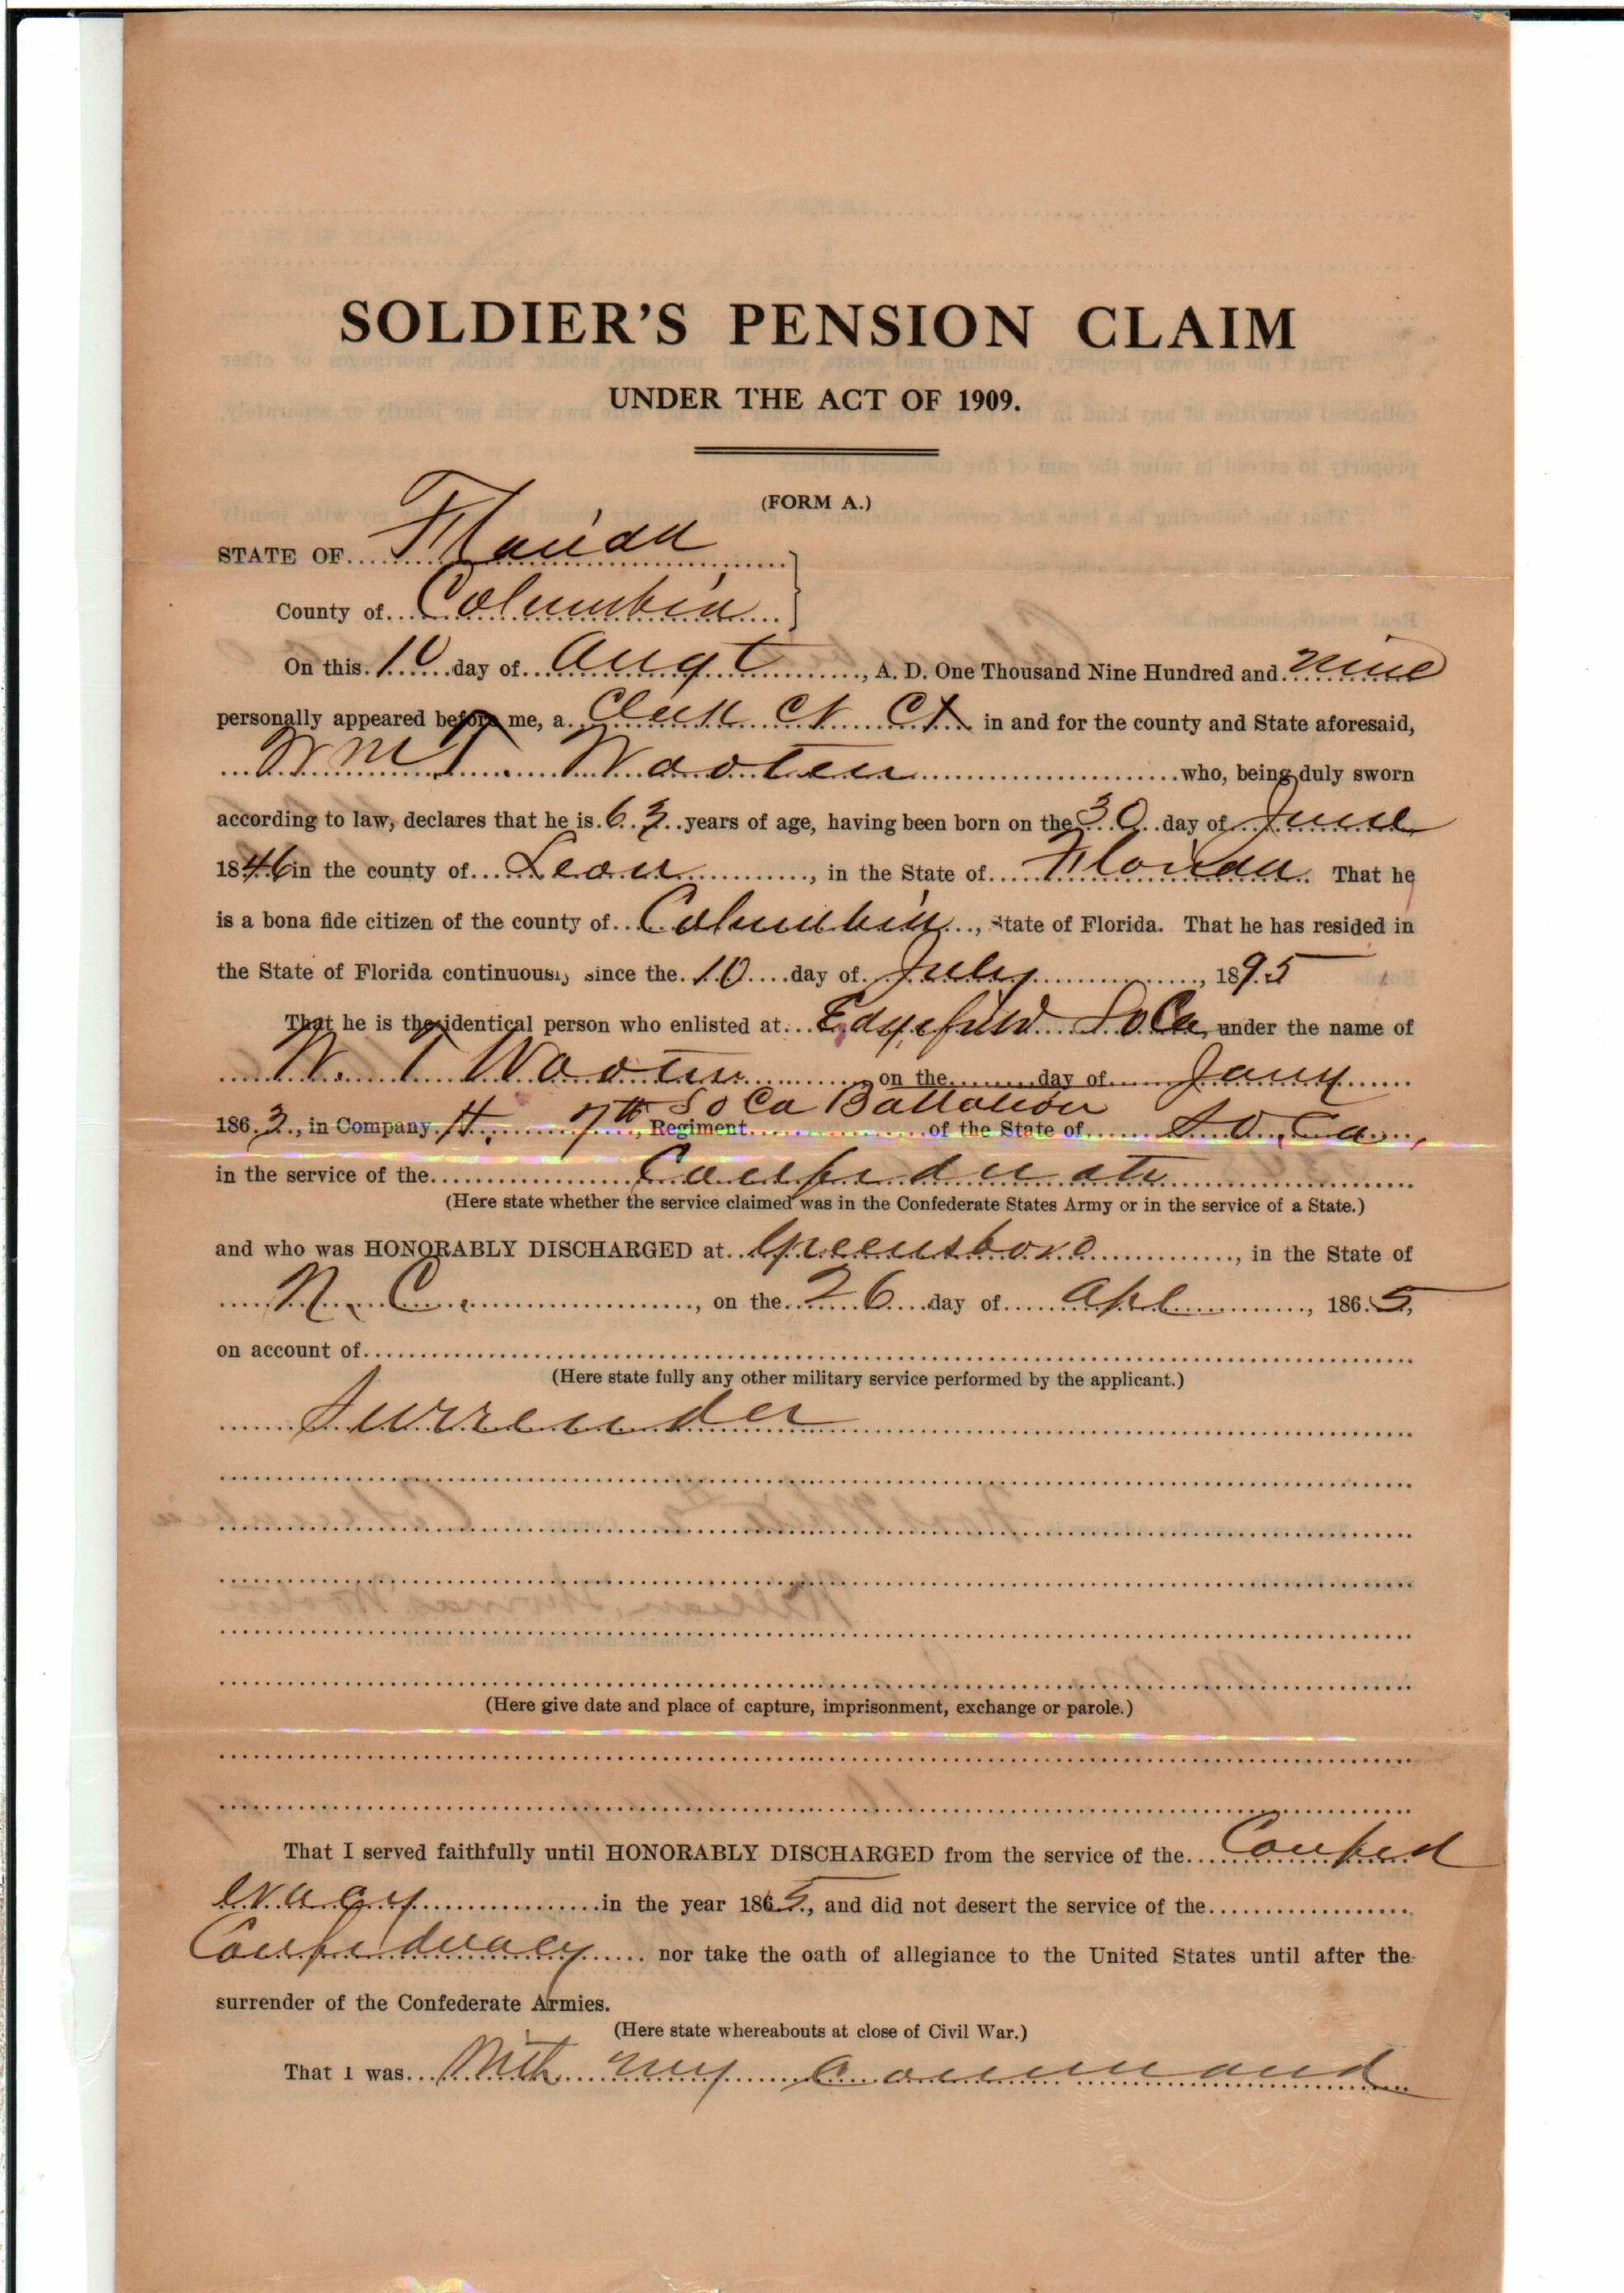 SOLDIER'S PENSION CLAIM
UNDER THE ACT OF 1909.
(FORM A.)
STATE OF Florida
County of Columbia
On this 10 day of Augt, A. D. One Thousand Nine Hundred and nine
personally appeared before me, a Clerk Ct Ct in and for the county and State aforesaid,
Wm T Wooten who, being duly sworn
according to law, declares that he is 63 years of age, having been born on the 30 day of June
1846 in the county of Leon, in the State of Florida. That he
is a bona fide citizen of the county of Columbia, State of Florida. That he has resided in
the State of Florida continuously since the 10 day of July, 1895
That he is the identical person who enlisted at Edgefield So Ca under the name of
W. T Wooten on the day of Jany
So Ca Battalion
1863, in Company H. 7th, Regiment of the State of So, Ca,
in the service of the Confederate
(Here state whether the service claimed was in the Confederate States Army or in the service of a State.)
and who was HONORABLY DISCHARGED at Greensboro, in the State of
N. C., on the 26 day of Apl, 1865,
on account of
(Here state fully any other military service performed by the applicant.)
Surrender
(Here give date and place of capture, imprisonment, exchange or parole.)
That I served faithfully until HONORABLY DISCHARGED from the service of the Confed
in the year 1865, and did not desert the service of the
Confederacy nor take the oath of allegiance to the United States until after the
surrender of the Confederate Armies.
(Here state whereabouts at close of Civil War.)
That I was With my command